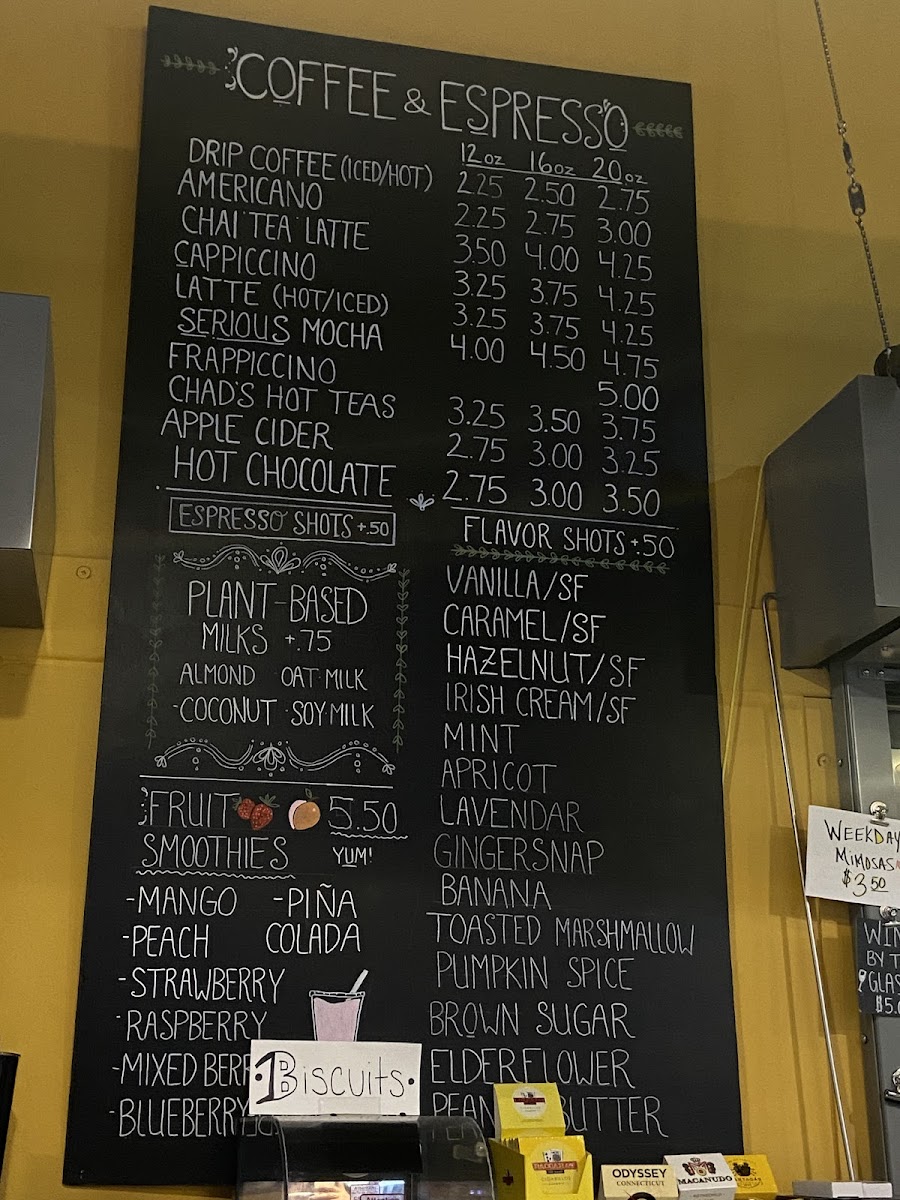 COFFEE & ESPRESSO
12 oz 16 oz 20 oz
DRIP COFFEE (ICED/HOT) 2.25 2.50 2.75
AMERICANO 2.25 2.75 3.00
CHAI TEA LATTE 3.50 4.00 4.25
CAPPICCINO 3.25 3.75 4.25
LATTE (HOT/ICED) 3.25 3.75 4.25
SERIOUS MOCHA 4.00 4.50 4.75
FRAPPICCINO 5.00
CHAD'S HOT TEAS 3.25 3.50 3.75
APPLE CIDER 2.75 3.00 3.25
HOT CHOCOLATE 2.75 3.00 3.50
ESPRESSO SHOTS +.50
PLANT-BASED
MILKS +.75
ALMOND OAT MILK
-COCONUT -SOY MILK
FRUIT 5.50
SMOOTHIES YUM!
-MANGO -PIÑA
-PEACH COLADA
-STRAWBERRY
-RASPBERRY
-MIXED BERR
-BLUEBERRY
FLAVOR SHOTS +.50
VANILLA/SF
CARAMEL/SF
HAZELNUT/SF
IRISH CREAM/SF
MINT
APRICOT
LAVENDAR
GINGERSNAP
BANANA
TOASTED MARSHMALLOW
PUMPKIN SPICE
BROWN SUGAR
ELDERFLOWER
PEAN BUTTER
Biscuits
WEEKDAY
MIMOSAS
$3.50
WIN
BY T
GLAS
$5.0
ODYSSEY
CONNECTICUT
MACANUDO